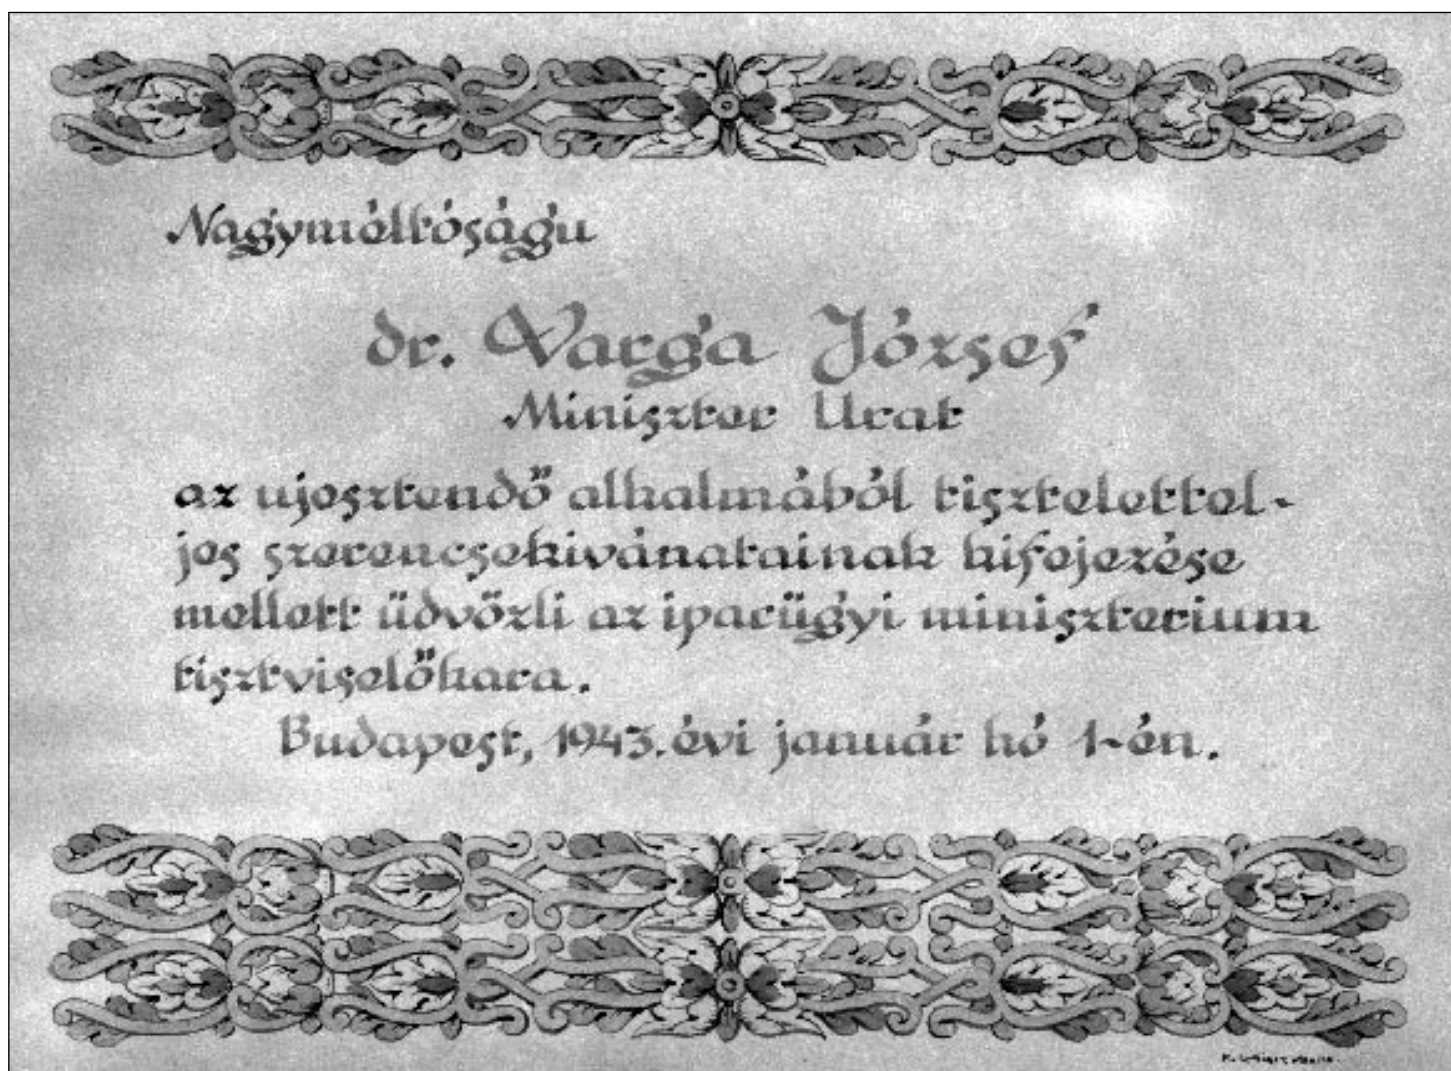 Nagyméltóságu
dr. Varga József
Miniszter Urat
az ujesztendő alkalmából tisztelettel-
jes szerencsekivánatainak kifejezése
mellett üdvözli az iparügyi miniszterium
tisztviselőkara.
Budapest, 1943. évi január hó 1-én.